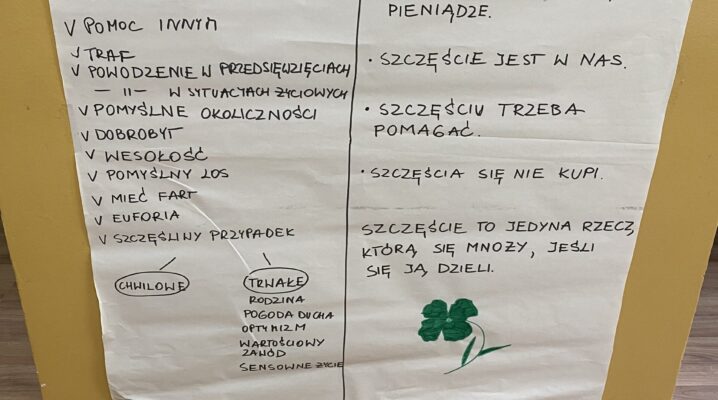 V POMOC INNYM
V TRAF
V POWODZENIE W PRZEDSIĘWZIĘCIACH
— 11 — W SYTUACJACH ŻYCIOWYCH
V POMYŚLNE OKOLICZNOŚCI
V DOBROBYT
V WESOŁOŚĆ
V POMYŚLNY LOS
V MIEĆ FART
V EUFORIA
V SZCZĘŚLIWY PRZYPADEK
CHWILOWE
TRWAŁE
RODZINA
POGODA DUCHA
OPTYMIZM
WARTOŚCIOWY
ZAWÓD
SENSOWNE ŻYCIE
PIENIĄDZE.
• SZCZĘŚCIE JEST W NAS.
• SZCZĘŚCIU TRZEBA
POMAGAĆ.
• SZCZĘŚCIA SIĘ NIE KUPI.
SZCZĘŚCIE TO JEDYNA RZECZ,
KTÓRĄ SIĘ MNOŻY, JEŚLI
SIĘ JĄ DZIELI.